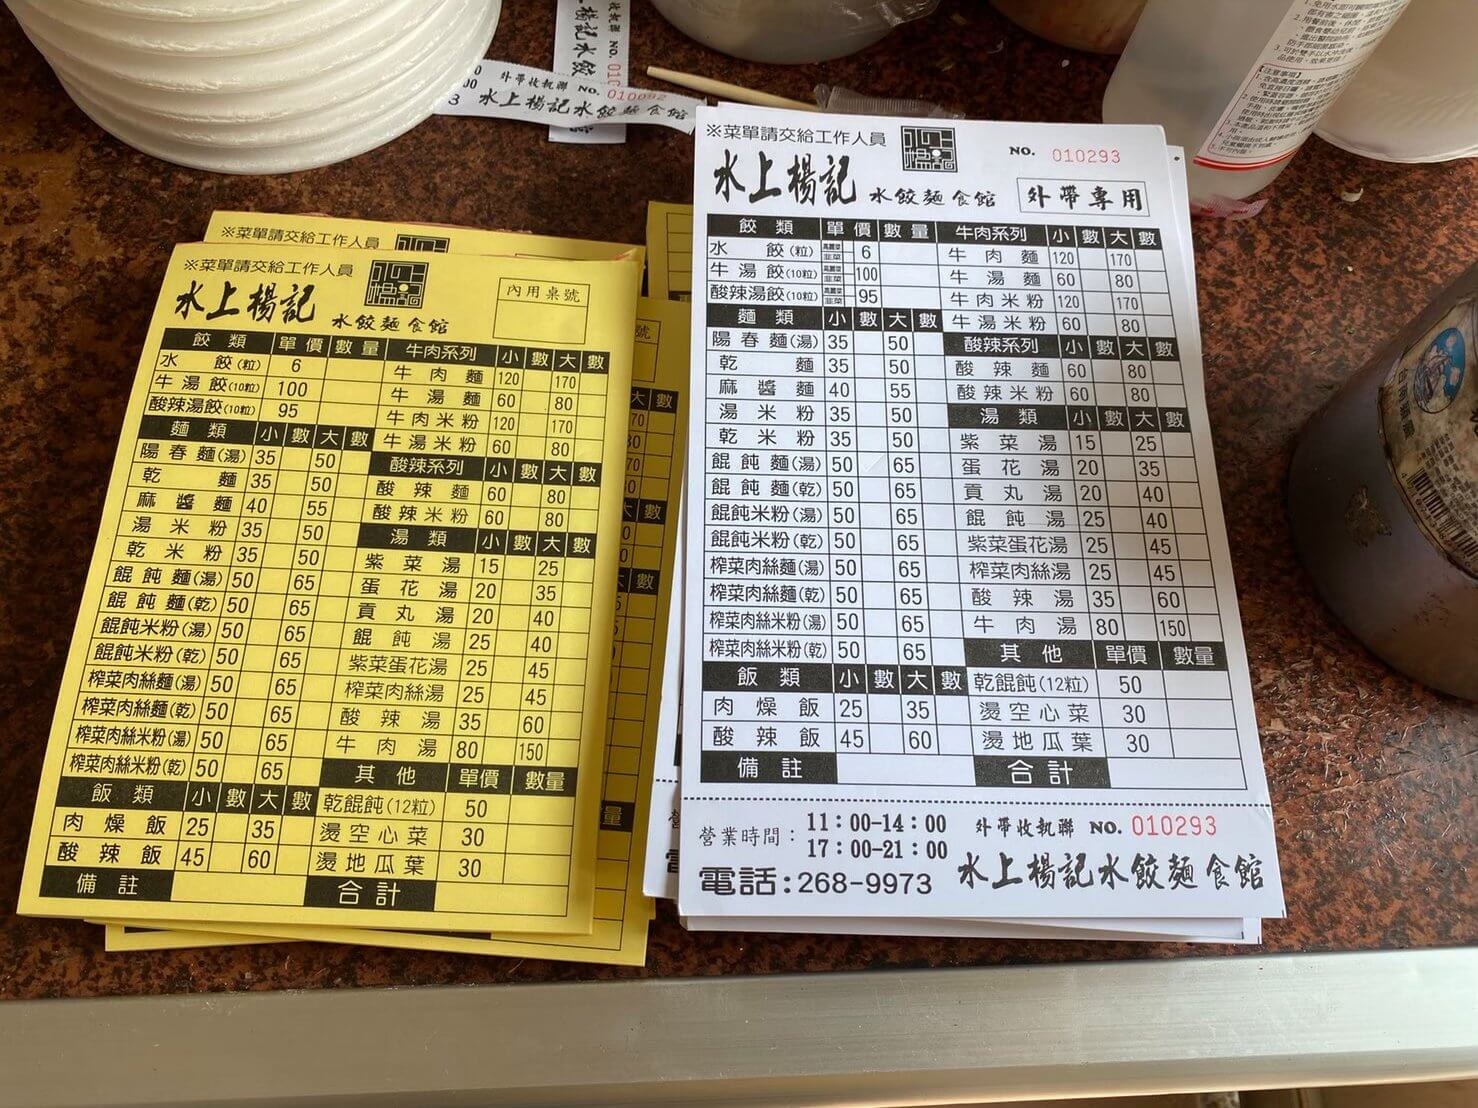 外帶收執聯 NO. 010092
水上楊記水餃麵食館
※菜單請交給工作人員
※菜單請交給工作人員
水上楊記 水餃麵食館
內用桌號
餃類 單價 數量
水餃(粒) 6
牛湯餃(10粒) 100
酸辣湯餃(10粒) 95
麵類 小 數 大 數
陽春麵(湯) 35 50
乾麵 35 50
麻醬麵 40 55
湯米粉 35 50
乾米粉 35 50
餛飩麵(湯) 50 65
餛飩麵(乾) 50 65
餛飩米粉(湯) 50 65
餛飩米粉(乾) 50 65
榨菜肉絲麵(湯) 50 65
榨菜肉絲麵(乾) 50 65
榨菜肉絲米粉(湯) 50 65
榨菜肉絲米粉(乾) 50 65
飯類 小 數 大 數
肉燥飯 25 35
酸辣飯 45 60
備註
牛肉系列 小 數 大 數
牛肉麵 120 170
牛湯麵 60 80
牛肉米粉 120 170
牛湯米粉 60 80
酸辣系列 小 數 大 數
酸辣麵 60 80
酸辣米粉 60 80
湯類 小 數 大 數
紫菜湯 15 25
蛋花湯 20 35
貢丸湯 20 40
餛飩湯 25 40
紫菜蛋花湯 25 45
榨菜肉絲湯 25 45
酸辣湯 35 60
牛肉湯 80 150
其他 單價 數量
乾餛飩(12粒) 50
燙空心菜 30
燙地瓜葉 30
合計
※菜單請交給工作人員
NO. 010293
水上楊記 水餃麵食館
外帶專用
餃類 單價 數量
水餃(粒) 高麗菜 韭菜 6
牛湯餃(10粒) 高麗菜 韭菜 100
酸辣湯餃(10粒) 高麗菜 韭菜 95
麵類 小 數 大 數
陽春麵(湯) 35 50
乾麵 35 50
麻醬麵 40 55
湯米粉 35 50
乾米粉 35 50
餛飩麵(湯) 50 65
餛飩麵(乾) 50 65
餛飩米粉(湯) 50 65
餛飩米粉(乾) 50 65
榨菜肉絲麵(湯) 50 65
榨菜肉絲麵(乾) 50 65
榨菜肉絲米粉(湯) 50 65
榨菜肉絲米粉(乾) 50 65
飯類 小 數 大 數
肉燥飯 25 35
酸辣飯 45 60
備註
牛肉系列 小 數 大 數
牛肉麵 120 170
牛湯麵 60 80
牛肉米粉 120 170
牛湯米粉 60 80
酸辣系列 小 數 大 數
酸辣麵 60 80
酸辣米粉 60 80
湯類 小 數 大 數
紫菜湯 15 25
蛋花湯 20 35
貢丸湯 20 40
餛飩湯 25 40
紫菜蛋花湯 25 45
榨菜肉絲湯 25 45
酸辣湯 35 60
牛肉湯 80 150
其他 單價 數量
乾餛飩(12粒) 50
燙空心菜 30
燙地瓜葉 30
合計
營業時間: 11:00-14:00
17:00-21:00
電話:268-9973
外帶收執聯 NO. 010293
水上楊記水餃麵食館